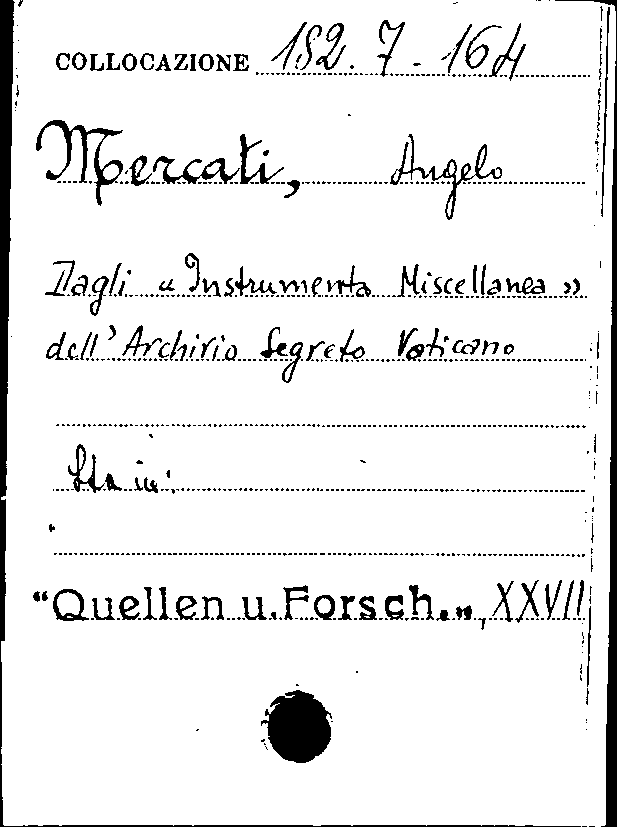 COLLOCAZIONE 182.7.164
Mercati, Angelo
Dagli « Instrumenta Miscellanea »
dell' Archivio Segreto Vaticano
Sta in:
"Quellen u. Forsch.", XXVII